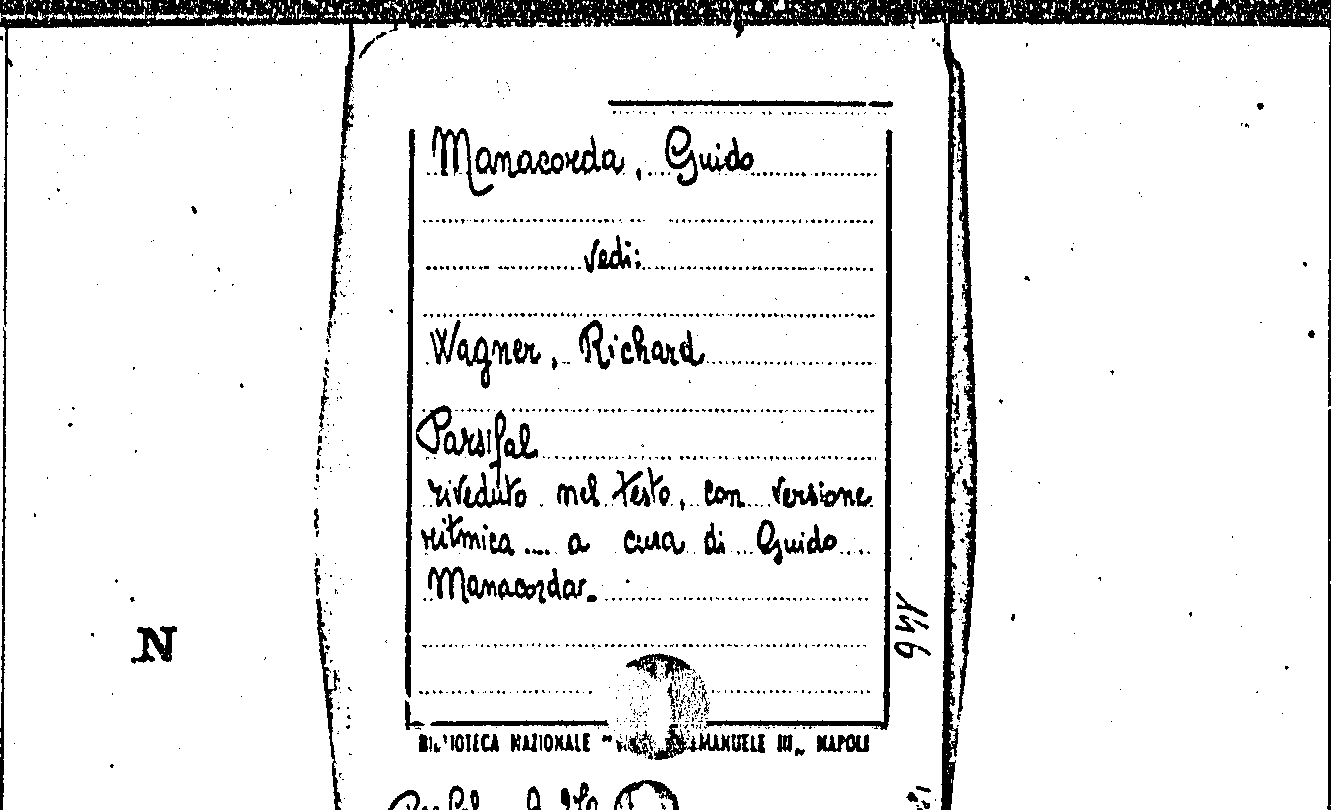 Manacorda, Guido
Vedi:
Wagner, Richard
Parsifal
riveduto nel testo, con versione
ritmica .... a cura di Guido
Manacorda.
N
BIBLIOTECA NAZIONALE " EMANUELE III„ NAPOLI